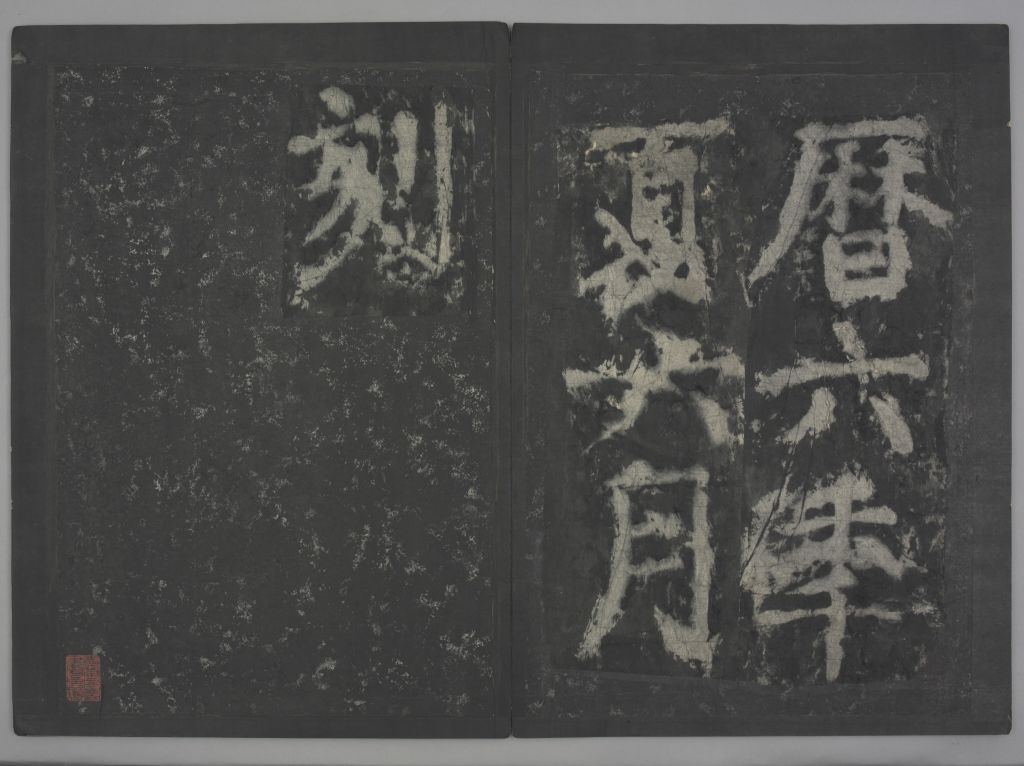 曆六年
夏六月
刻